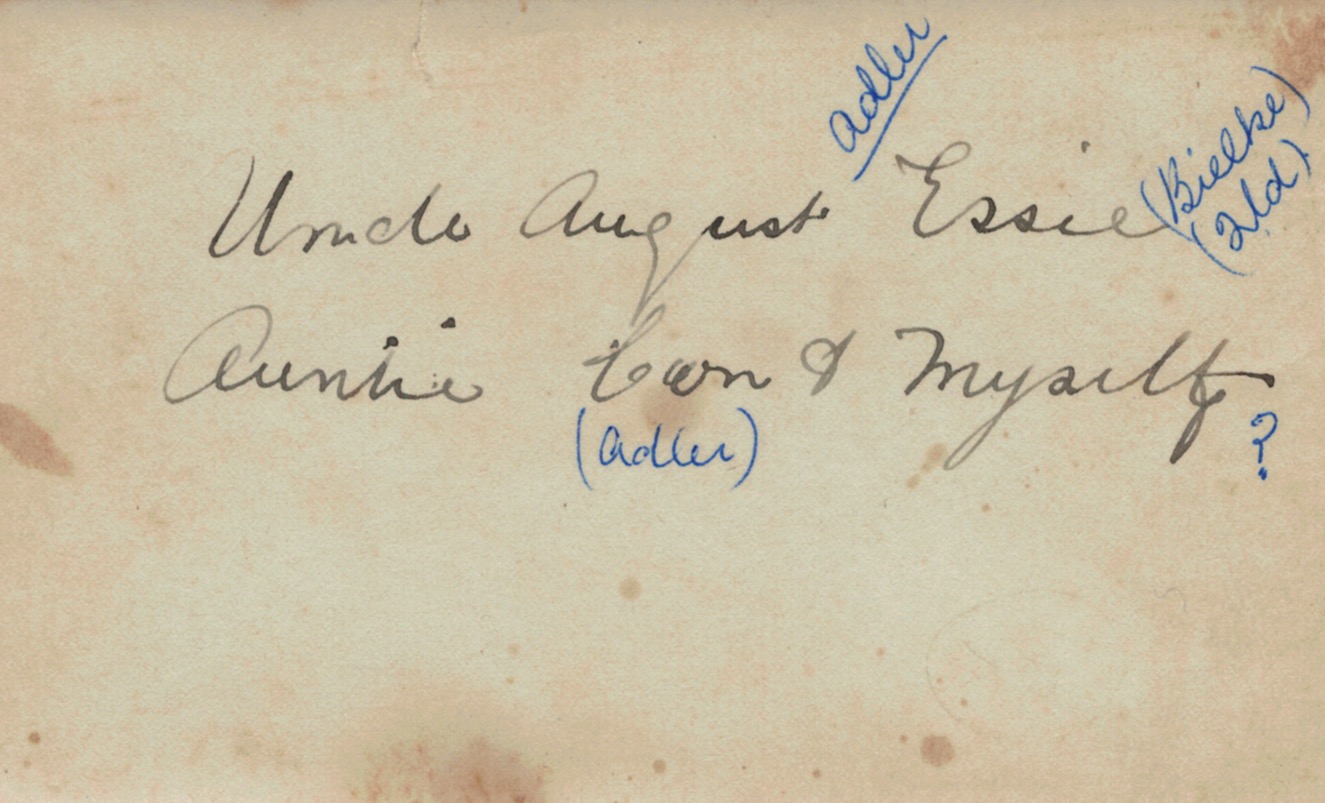 Adler
Uncle August Essie (Bielke)
(Qld)
Auntie & Myself
(Adler) ?